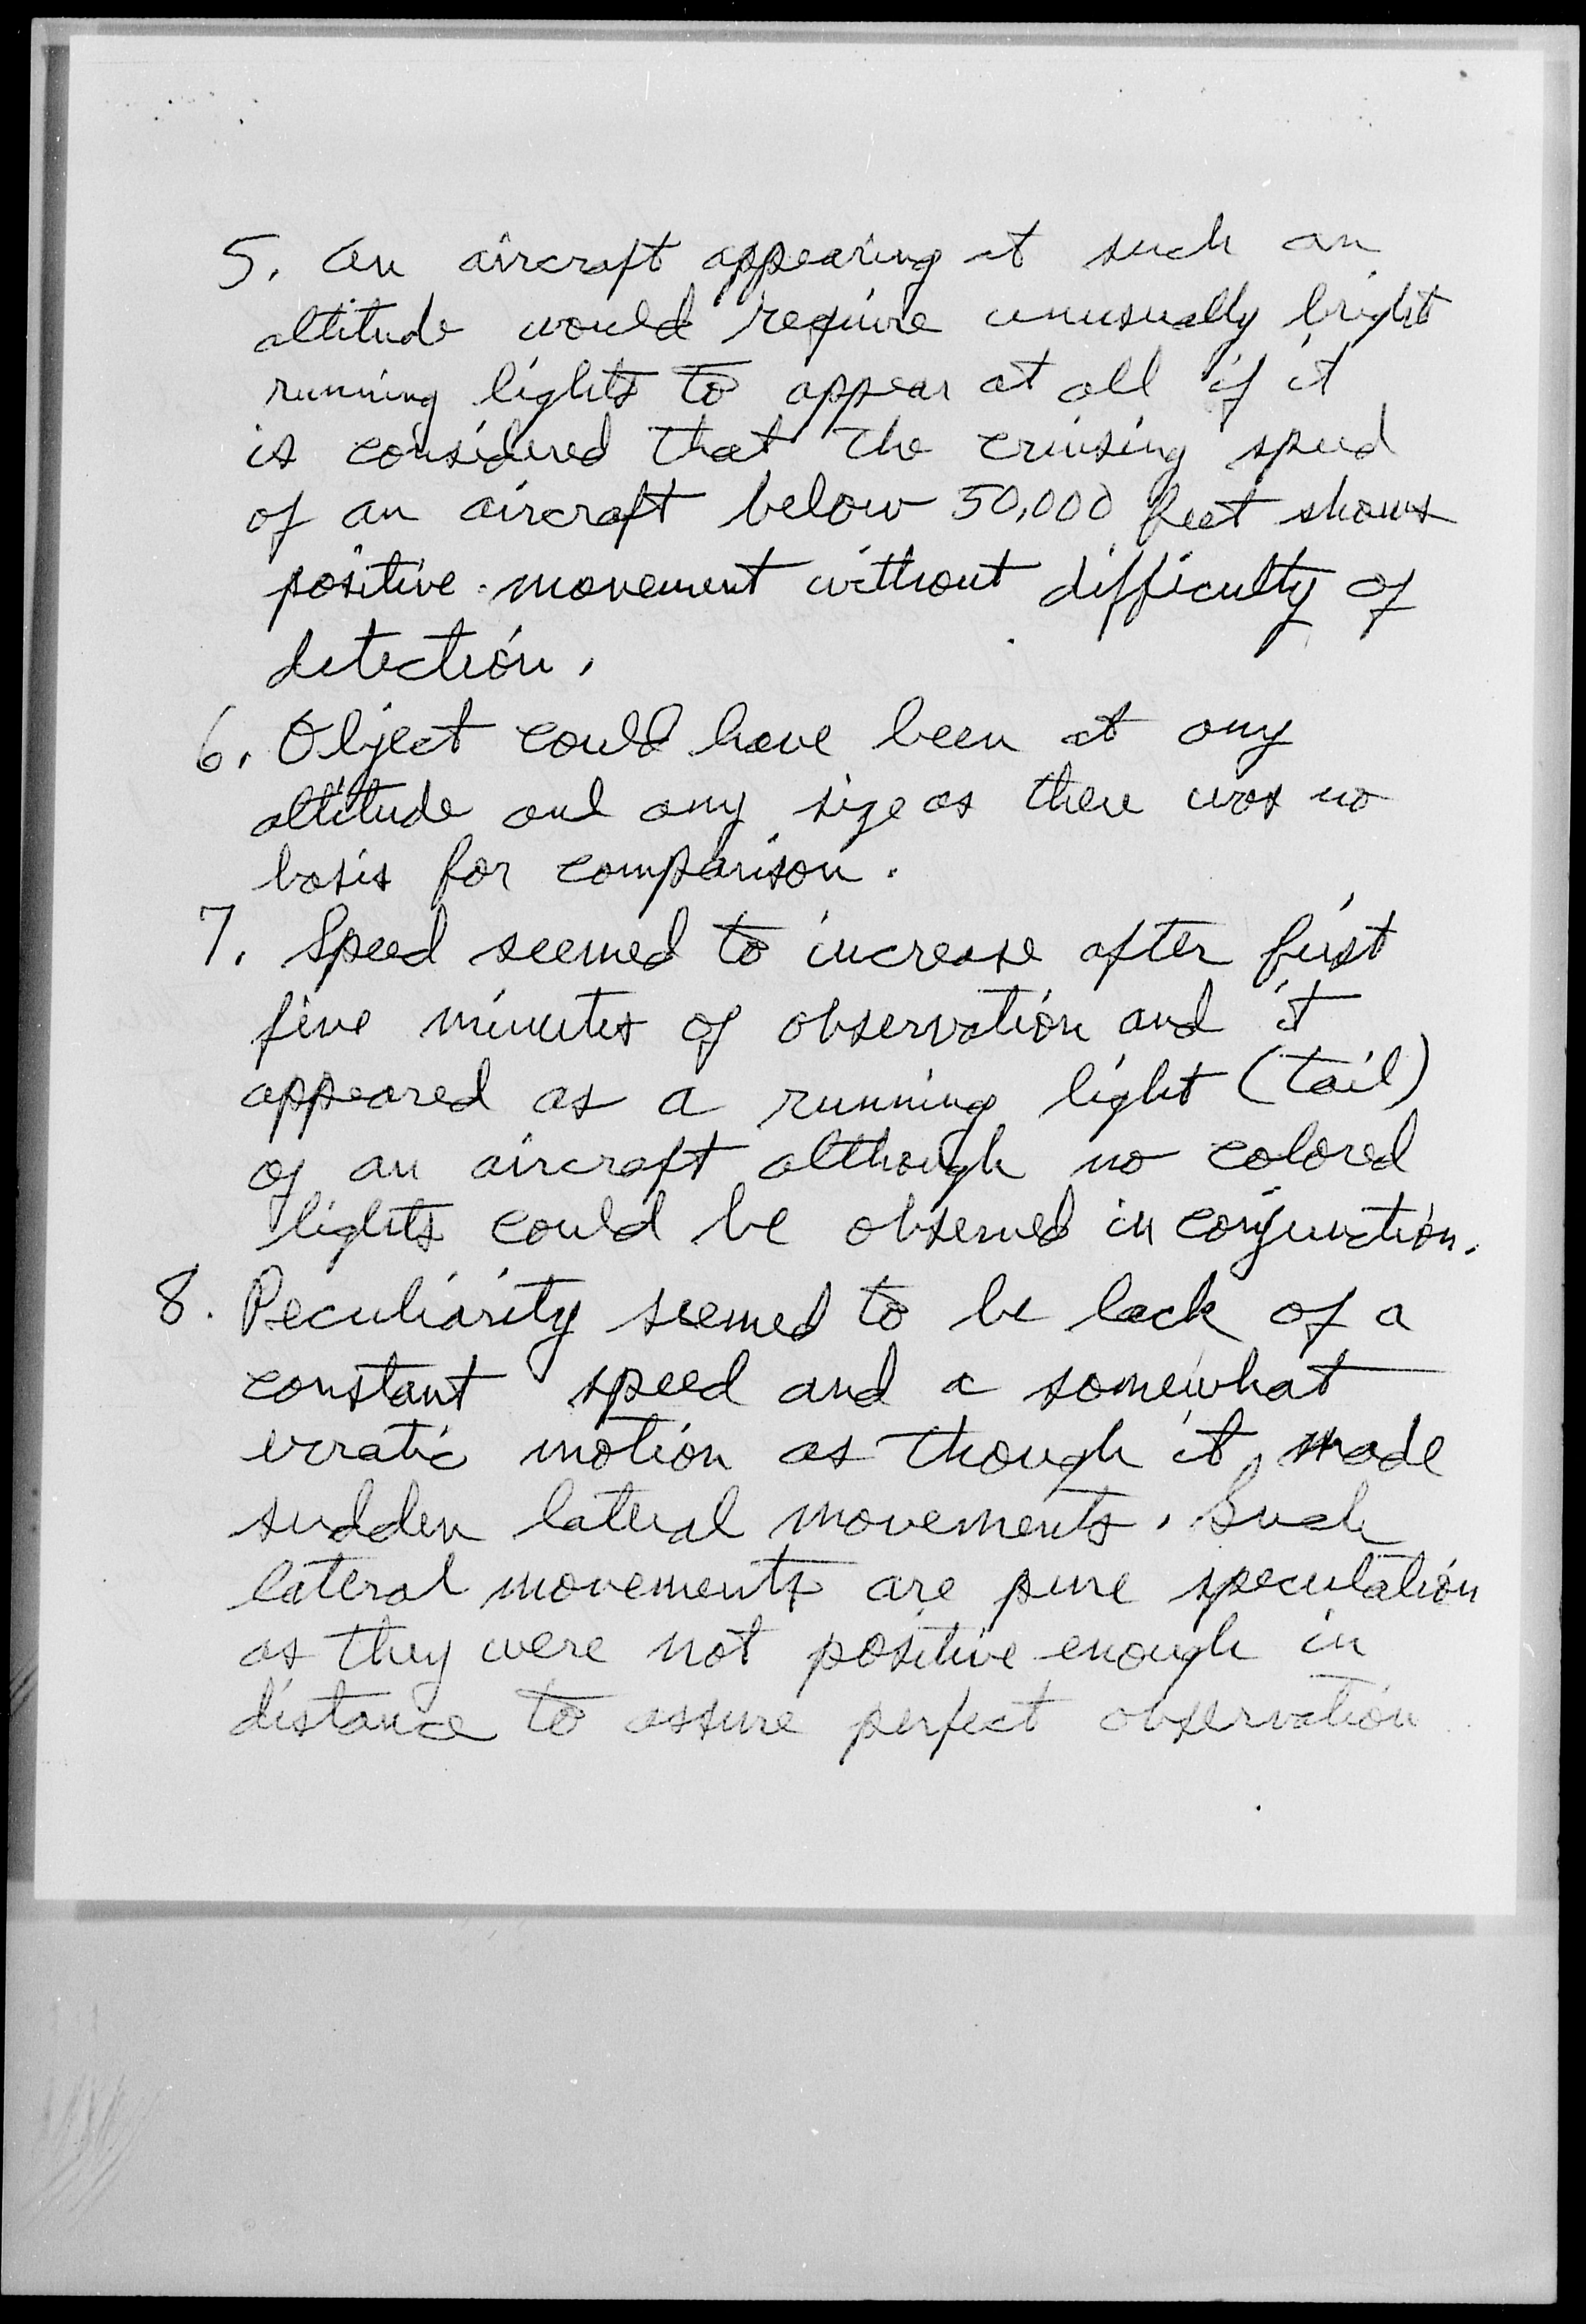 5. An aircraft appearing at such an
altitude would require unusually bright
running lights to appear at all if it
is considered that the cruising speed
of an aircraft below 50,000 feet shows
positive movement without difficulty of
detection.
6. Object could have been at any
altitude and any size as there was no
basis for comparison.
7. Speed seemed to increase after first
five minutes of observation and it
appeared as a running light (tail)
of an aircraft although no colored
lights could be observed in conjunction.
8. Peculiarity seemed to be lack of a
constant speed and a somewhat
erratic motion as though it made
sudden lateral movements. Such
lateral movements are pure speculation
as they were not positive enough in
distance to assure perfect observation